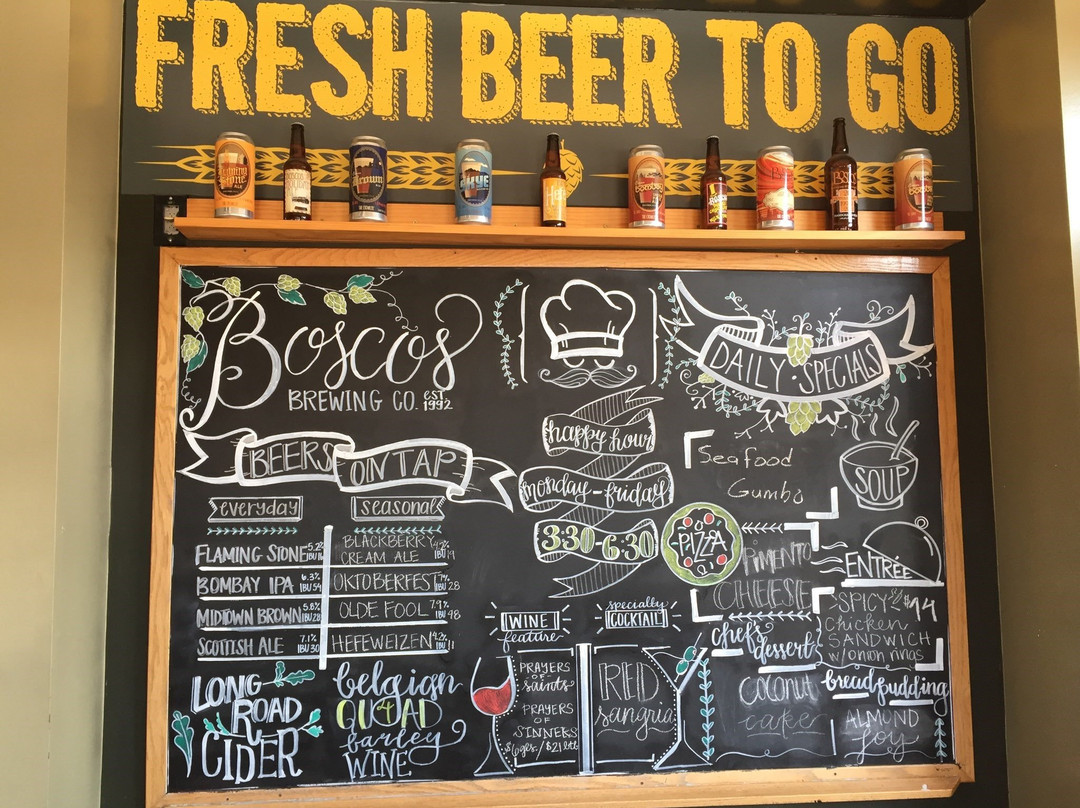 FRESH BEER TO GO
Boscos
BREWING CO. EST 1992
BEERS ON TAP
everyday
FLAMING STONE 5.2%
BOMBAY IPA 6.3% IBU 54
MIDTOWN BROWN 5.8% IBU 28
SCOTTISH ALE 7.1% IBU 30
seasonal
BLACKBERRY
CREAM ALE IBU 19
OKTOBERFEST IBU 28
OLDE FOOL 7.9% IBU 48
HEFEWEIZEN IBU 11
LONG
ROAD
CIDER
belgian
QUAD
barley
WINE
happy hour
monday-friday
3:30-6:30
WINE
feature
PRAYERS
OF
saints
PRAYERS
OF
SINNERS
specialty
COCKTAIL
RED
sangria
DAILY · SPECIALS
Seafood
Gumbo
SOUP
PIZZA
PIMENTO
CHEESE
ENTRÉE
SPICY $14
Chicken
SANDWICH
w/onion rings
chef's
desserts
COCONUT
cake
bread pudding
ALMOND
JOY